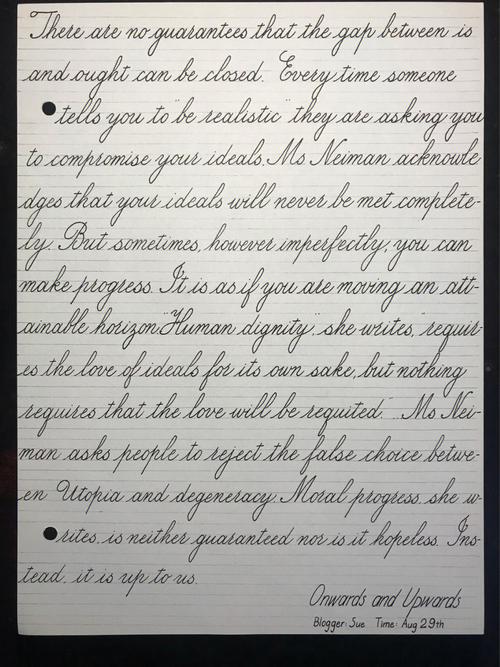 There are no guarantees that the gap between is
and ought can be closed. Every time someone
tells you to "be realistic" they are asking you
to compromise your ideals. Ms Neiman acknowle
dges that your ideals will never be met complete-
ly. But sometimes, however imperfectly, you can
make progress. It is as if you are moving an att-
ainable horizon. "Human dignity", she writes, "requir-
es the love of ideals for its own sake, but nothing
requires that the love will be requited." Ms Nei-
man asks people to reject the false choice betwe-
en Utopia and degeneracy. Moral progress, she w-
rites, is neither guaranteed nor is it hopeless. Ins-
tead, it is up to us.
Onwards and Upwards
Blogger: Sue Time: Aug 29th